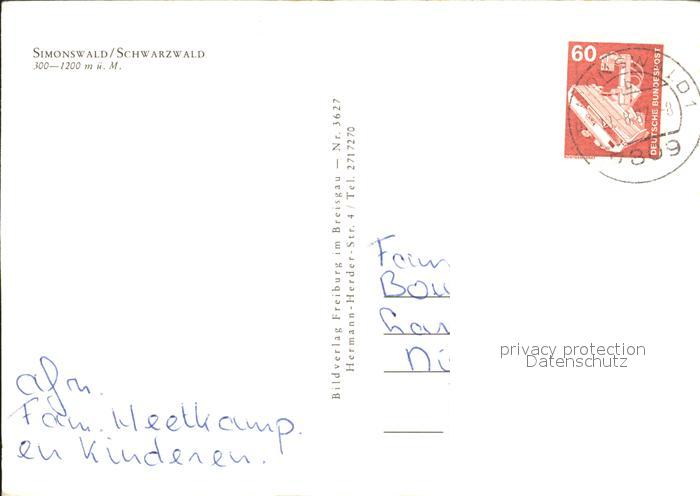 SIMONSWALD/SCHWARZWALD
300—1200 m ü. M.
Bildverlag Freiburg im Breisgau — Nr. 3627
Hermann-Herder-Str. 4 / Tel. 2717270
60
DEUTSCHE BUNDESPOST
7809
Fam
Bou
privacy protection
Datenschutz
afz.
Fam. Heetkamp.
en kinderen.